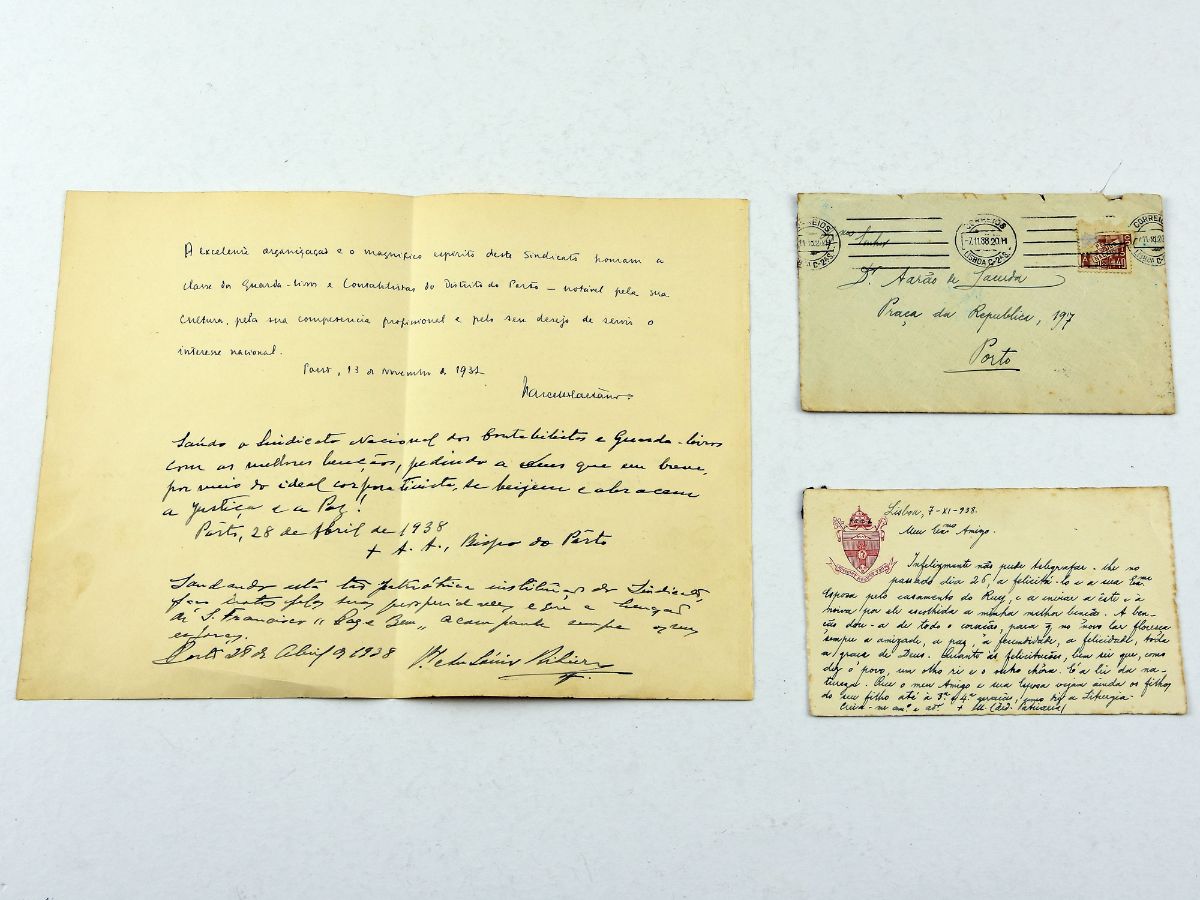 A excelente organização e o magnífico espírito deste Sindicato honram a
classe dos Guarda-livros e Contabilistas do Distrito do Porto — notável pela sua
cultura, pela sua competencia profissional e pelo seu desejo de servir o
interesse nacional.
Porto, 13 de Novembro de
Marcello Caetano
Saúdo o Sindicato Nacional dos Contabilistas e Guarda-livros
com as melhores bençãos, pedindo a Deus que em breve,
por meio do ideal corporativista, se beijem e abracem
a Justiça e a Paz!
Pôrto, 28 de Abril de 1938
+ A. A., Bispo do Pôrto
Saudando esta tão patriótica instituição do Sindicato,
faço votos pelas suas prosperidades e que a benção
de S. Francisco "Paz e Bem" acompanhe sempre os seus
esforços.
Porto 28 de Abril de 1938
CORREIOS
7.11.38.20H
LISBOA C-2ªS.
Senhor
Dr. Aarão de Lacerda
Praça da Republica, 197
Porto
Lisboa, 7-XI-938.
Meu Exmo Amigo.
Infelizmente não pude telegrafar-lhe no
passado dia 26, a felicitá-lo e a sua Exma
Esposa pelo casamento do Ruy, e a enviar a êste e à
noiva por ele escolhida a minha melhor benção. A ben-
ção dou-a de todo o coração, para q. no novo lar floresça
sempre a amizade, a paz, a fecundidade, a felicidade, toda
a graça de Deus. Quanto às felicitações, bem sei que, como
diz o povo, um olho ri e o outro chóra. É a lei da na-
tureza. Que o meu Amigo e sua Esposa vejam ainda os filhos
do seu filho até à 3ª e 4ª geração, como diz a Liturgia.
Creia-me amº e adº + M. Card. Patriarca